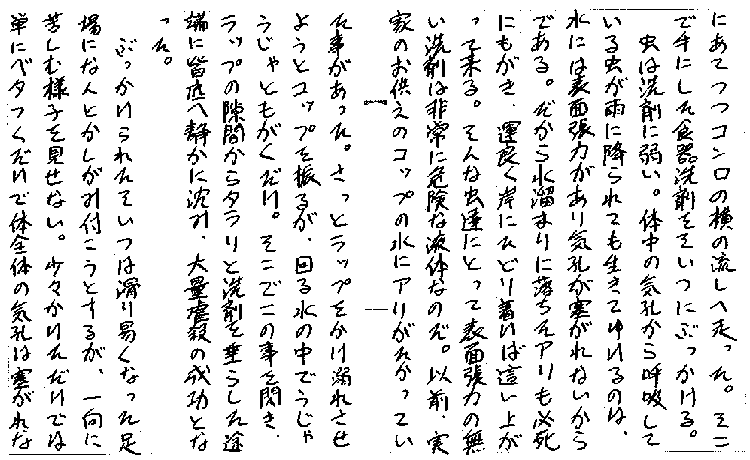 にあてつつコンロの横の流しへ走った。そこ
で手にした食器洗剤をそいつにぶっかける。
虫は洗剤に弱い。体中の気孔から呼吸して
いる虫が雨に降られても生きてゆけるのは、
水には表面張力があり気孔が塞がれないから
である。だから水溜まりに落ちたアリも必死
にもがき、運良く岸にたどり着けば這い上が
って来る。そんな虫達にとって表面張力の無
い洗剤は非常に危険な液体なのだ。以前、実
家のお供えのコップの水にアリがたかってい
た事があった。さっとラップをかけ溺れさせ
ようとコップを振るが、回る水の中でうじゃ
うじゃともがくだけ。そこでこの事を聞き、
ラップの隙間からタラリと洗剤を垂らした途
端に皆底へ静かに沈み、大量虐殺の成功とな
った。
ぶっかけられたそいつは滑り易くなった足
場になんとかしがみ付こうとするが、一向に
苦しむ様子を見せない。少々かけただけでは
単にベタつくだけで体全体の気孔は塞がれな